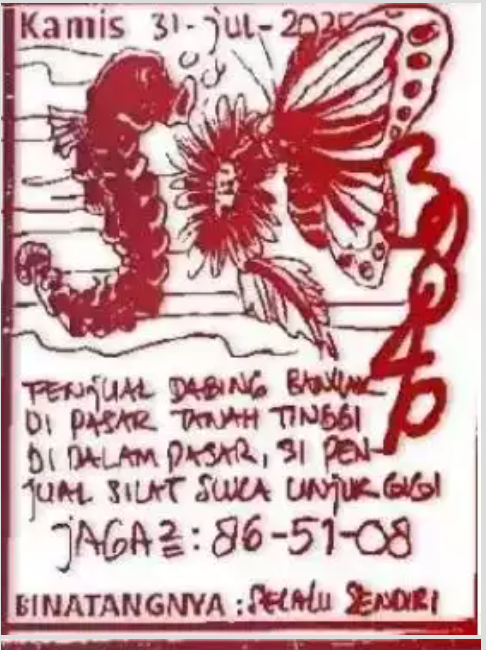 Kamis 31-Jul-2025
PENJUAL DAGING BANYAK
DI PASAR TANAH TINGGI
DI DALAM PASAR, SI PEN-
JUAL SILAT SUKA UNJUK GIGI
JAGA2: 86-51-08
BINATANGNYA: SELALU SENDIRI